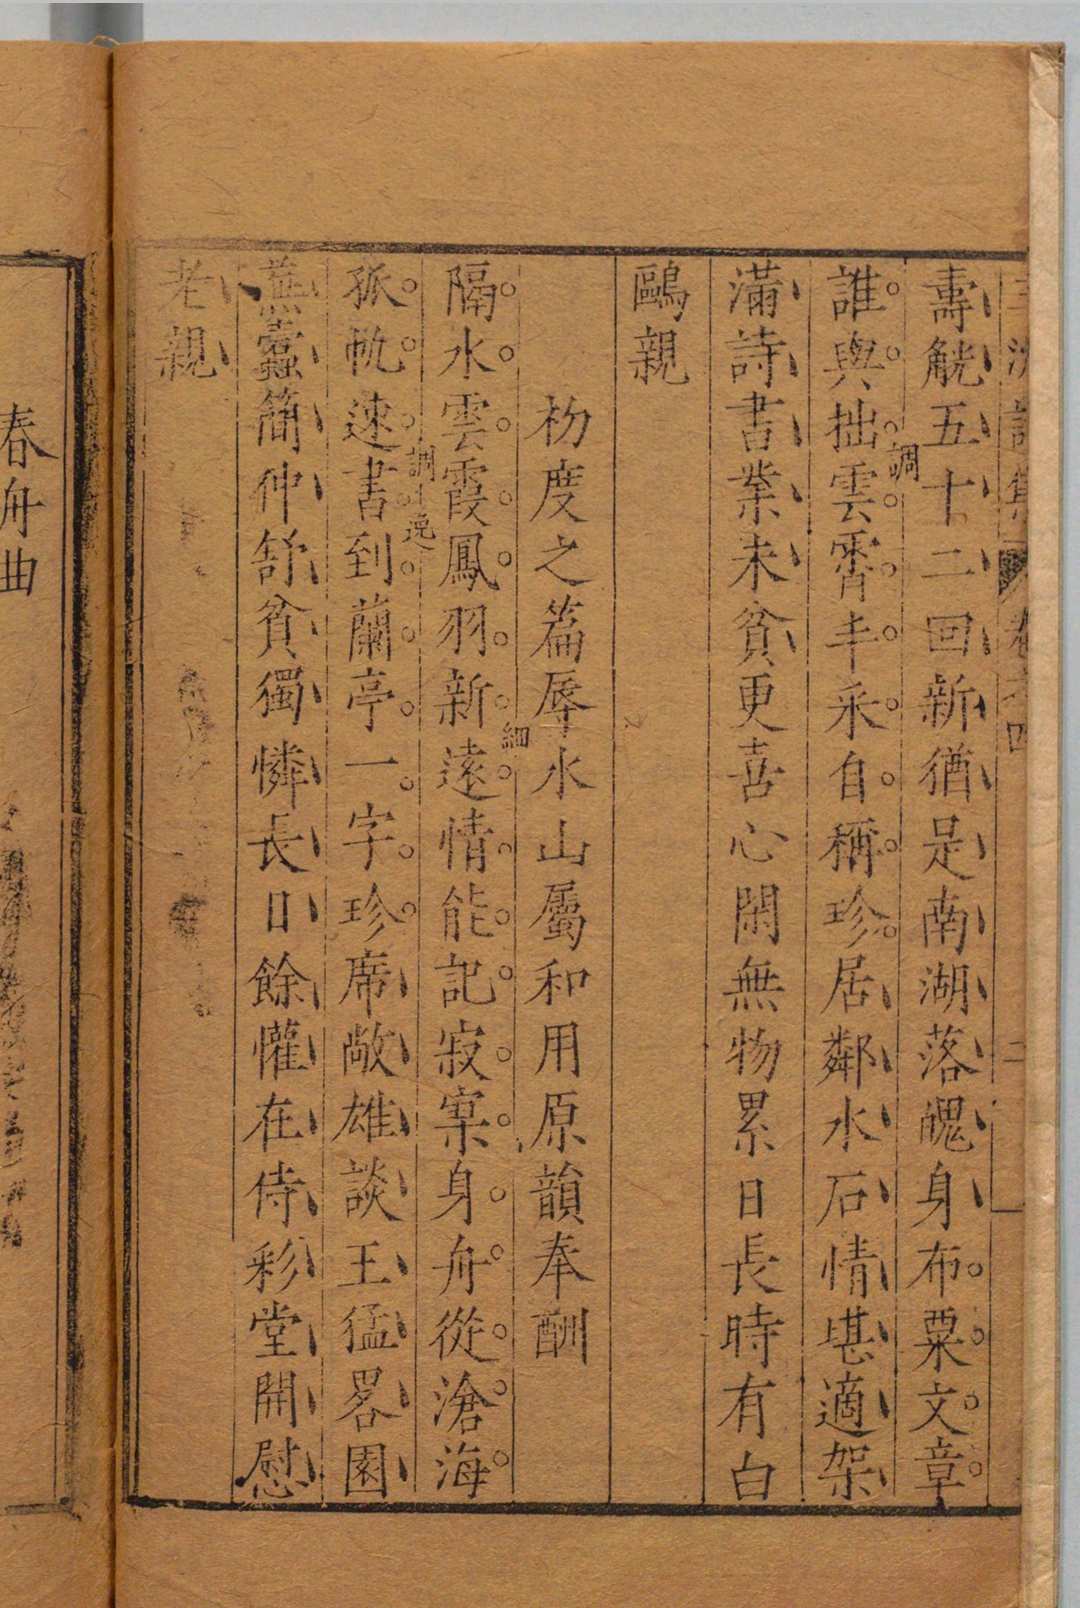 壽觥五十二回新猶是南湖落魄身布粟文章
誰與拙雲霄丰采自稱珍居鄰水石情堪適架
調
滿詩書業未貧更喜心閑無物累日長時有白
鷗親
枌度之篇辱水山屬和用原韻奉酬
隔水雲霞鳳羽新遠情能記寂寞身舟從滄海
細
孤帆速書到蘭亭一字珍席敞雄談王猛畧園
調逸
蠹簡仲舒貧獨憐長日餘懽在侍彩堂開慰
老親
春舟曲